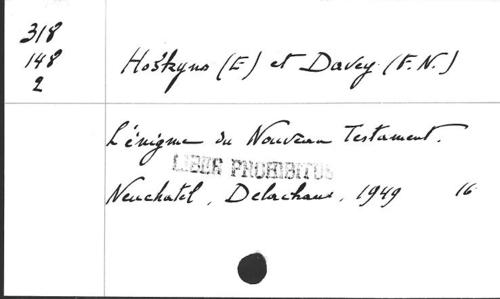 318
148
2
Hoskyns (E) et Davey (F. N.)
L'énigme du Nouveau Testament.
LIBER PROHIBITUS
Neuchatel, Delachaux, 1949 16